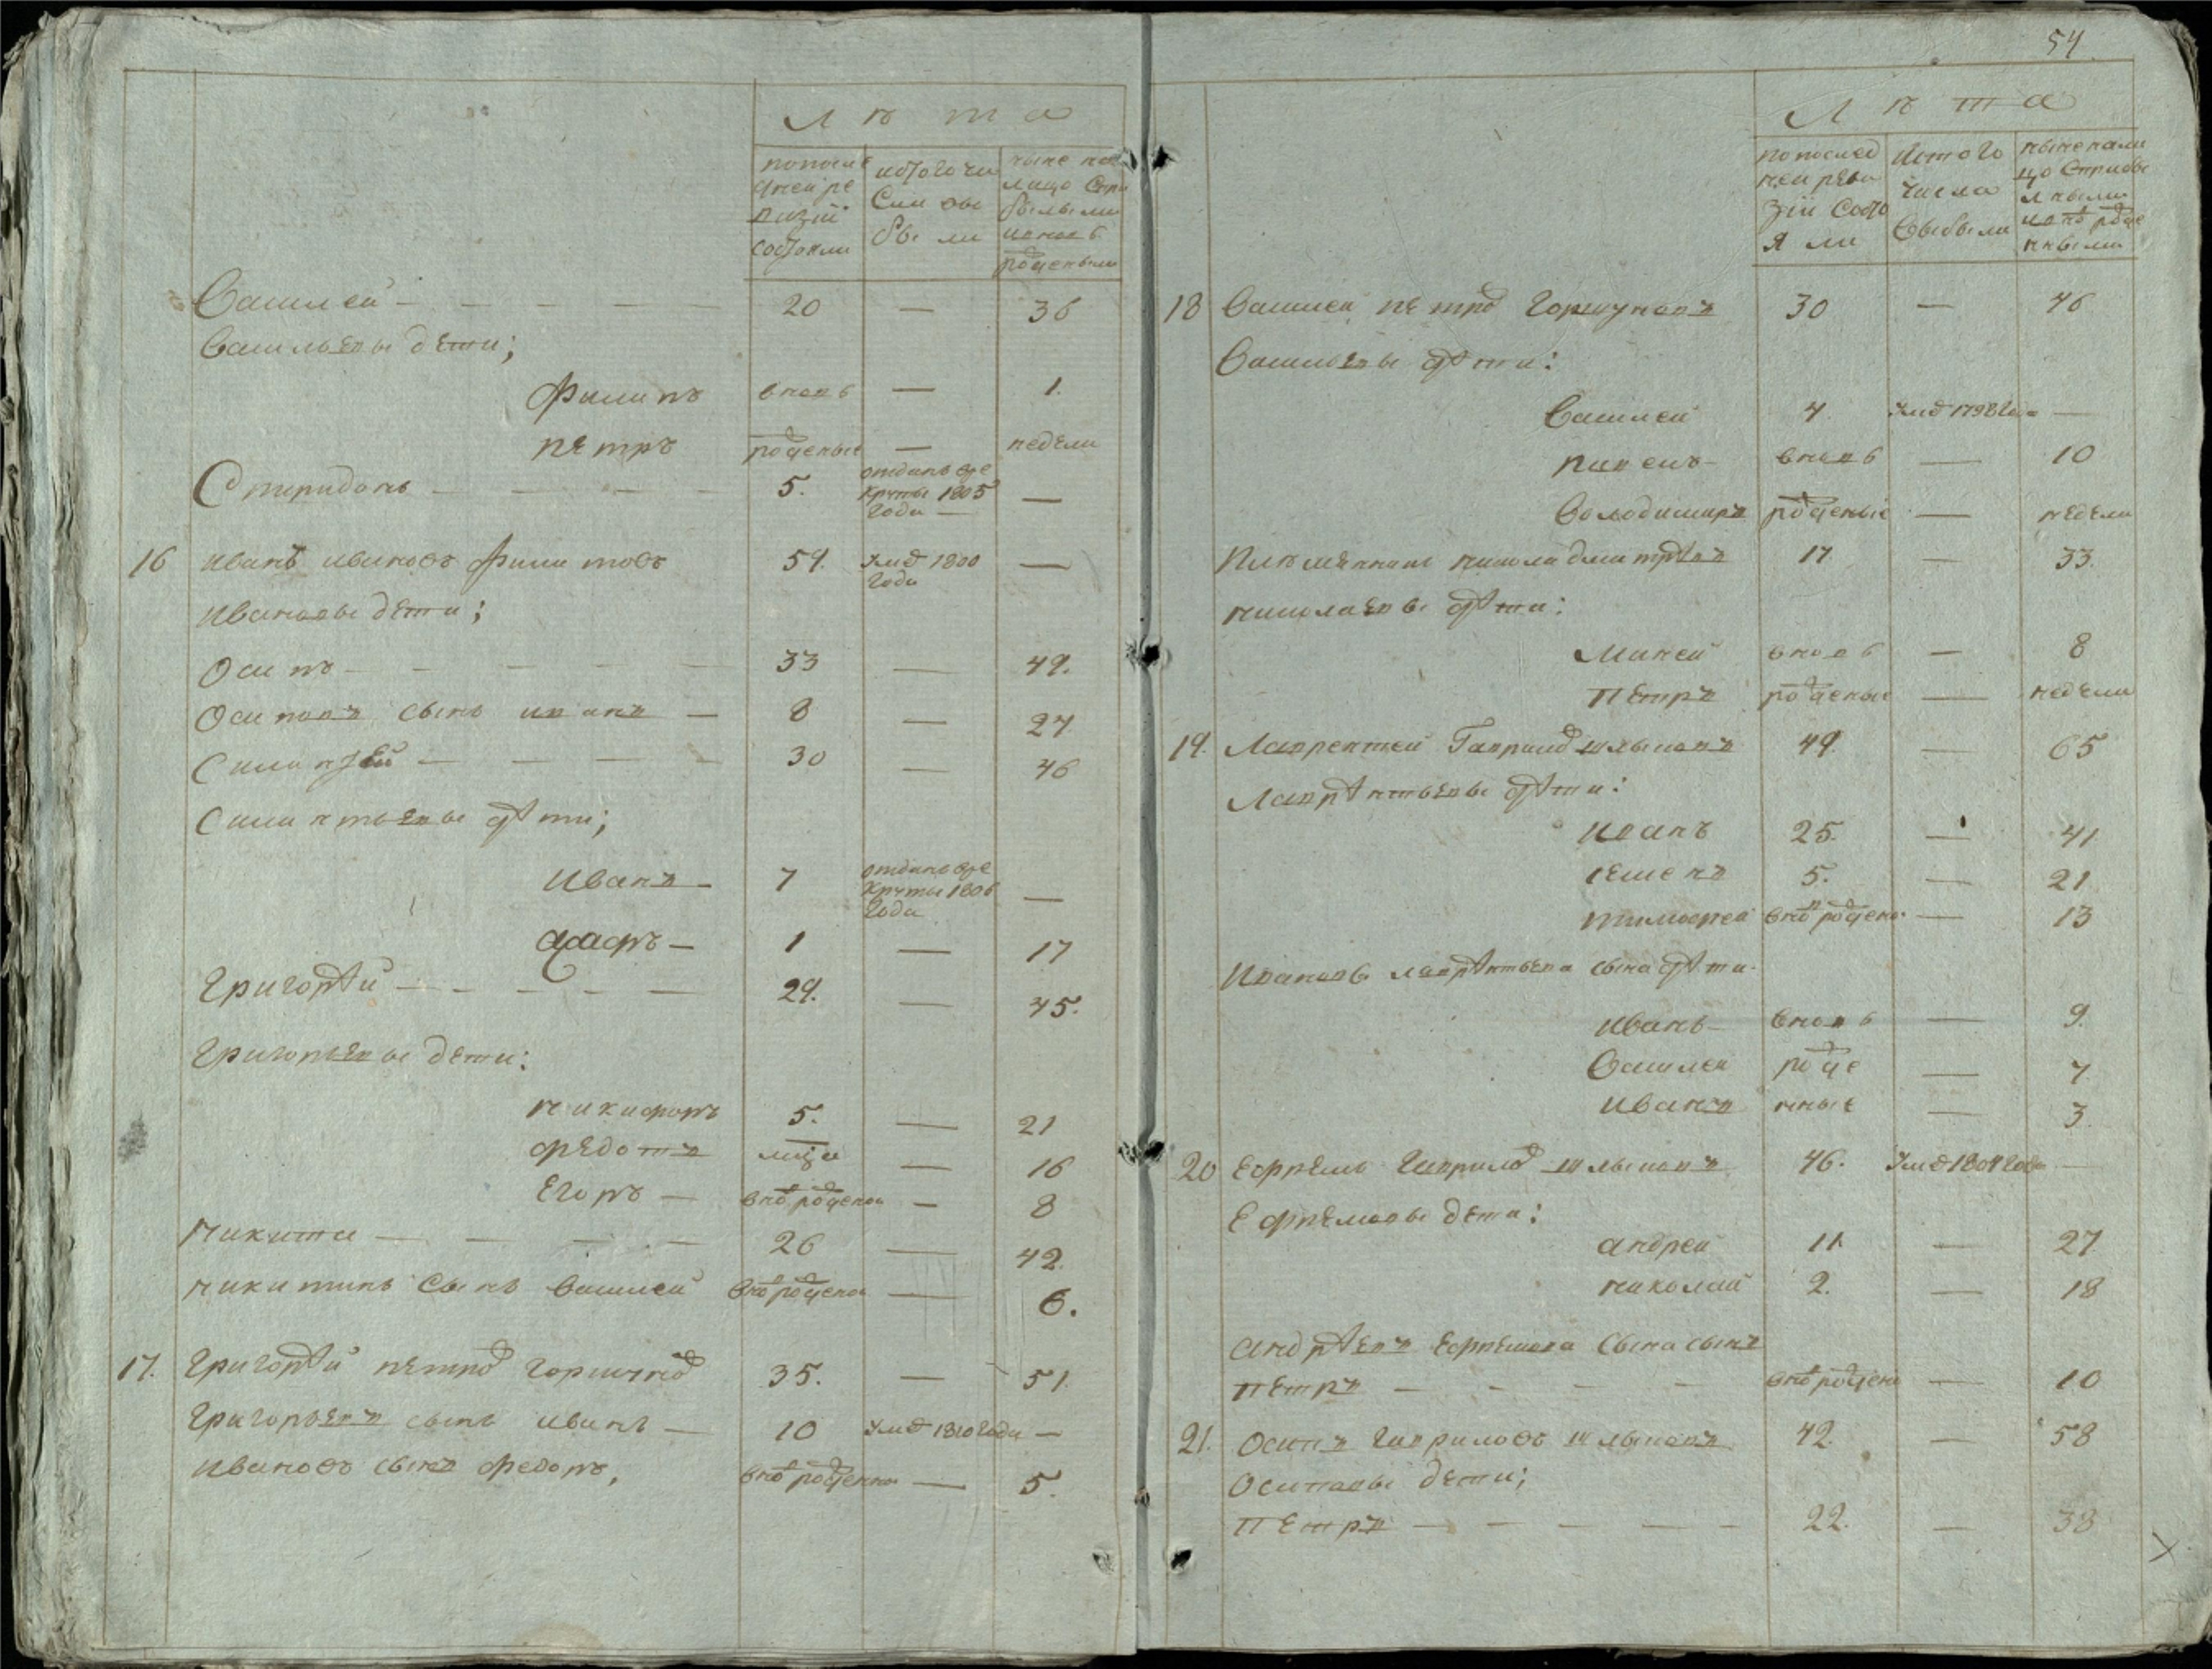 Лѣта
попослѣ
дней ре
визiи
состояли
истого чи
сла вы
были
ныне на
лицо спри
былыми
и вновь
рожденыи
Василей — — — — — 20 — 36
Васильевы дети;
Филипъ вновь — 1.
петръ рожденые — недели
Спиридонъ — — — — 5. отданъ вре
круты 1805
года —
16 иванъ ивановъ Филиповъ 59. умер 1800
года —
ивановы дети;
Осипъ — — — — 33 — 49.
Осиповъ сынъ иванъ — 8 — 24
Силинтей — — — — 30 — 46
Силинтьевы дѣти;
иванъ — 7 отданъ вре
круты 1806
года —
1 — 17
григорѣй — — — — 29. — 45.
григорьевы дети:
никифоръ 5. — 21
федотъ — 16
Егоръ — вно рожденой — 8
никита — — — — 26 — 42.
никитинъ сынъ василей вно рожденой — 6.
17. григорѣй петров горшунов 35. — 51.
григорьевъ сынъ иванъ — 10 умер 1810 года —
ивановъ сынъ федоръ, вно рожденной — 5.
54
Лѣта
по послед
ней реви
зiи состо
яли
истого
числа
выбыли
ныне нали
цо сприбы
лными
и вно рожде
нными
18 василей петров горшуновъ 30 — 46
васильевы дѣти:
василей 4. умер 1798 года —
вновь — 10
володимиръ рожденые — недели
племянникъ никола дмитрѣевъ 17 — 33.
николаевы дѣти:
вновь — 8
петръ рожденые — недели
19. Лаврентей Гаврилов шлыковъ 49. — 65
Лаврѣнтьевы дѣти:
иванъ 25. — 41
семенъ 5. — 21
тимофей вно рожден — 13
ивановы лаврѣнтьева сына дѣти.
иванъ — вновь — 9.
василей рожде — 7
иванъ нные — 3
20 ефремъ гаврилов шлыковъ 46. умер 1804 года —
Ефремовы дети:
андрей 11. — 27
николай 2. — 18
андрѣевъ ефремова сына сынъ
петръ — — — — вно рождены — 10
21. осипъ гавриловъ шлыковъ 42. — 58
осиповы дети;
петръ — — — — 22. — 38